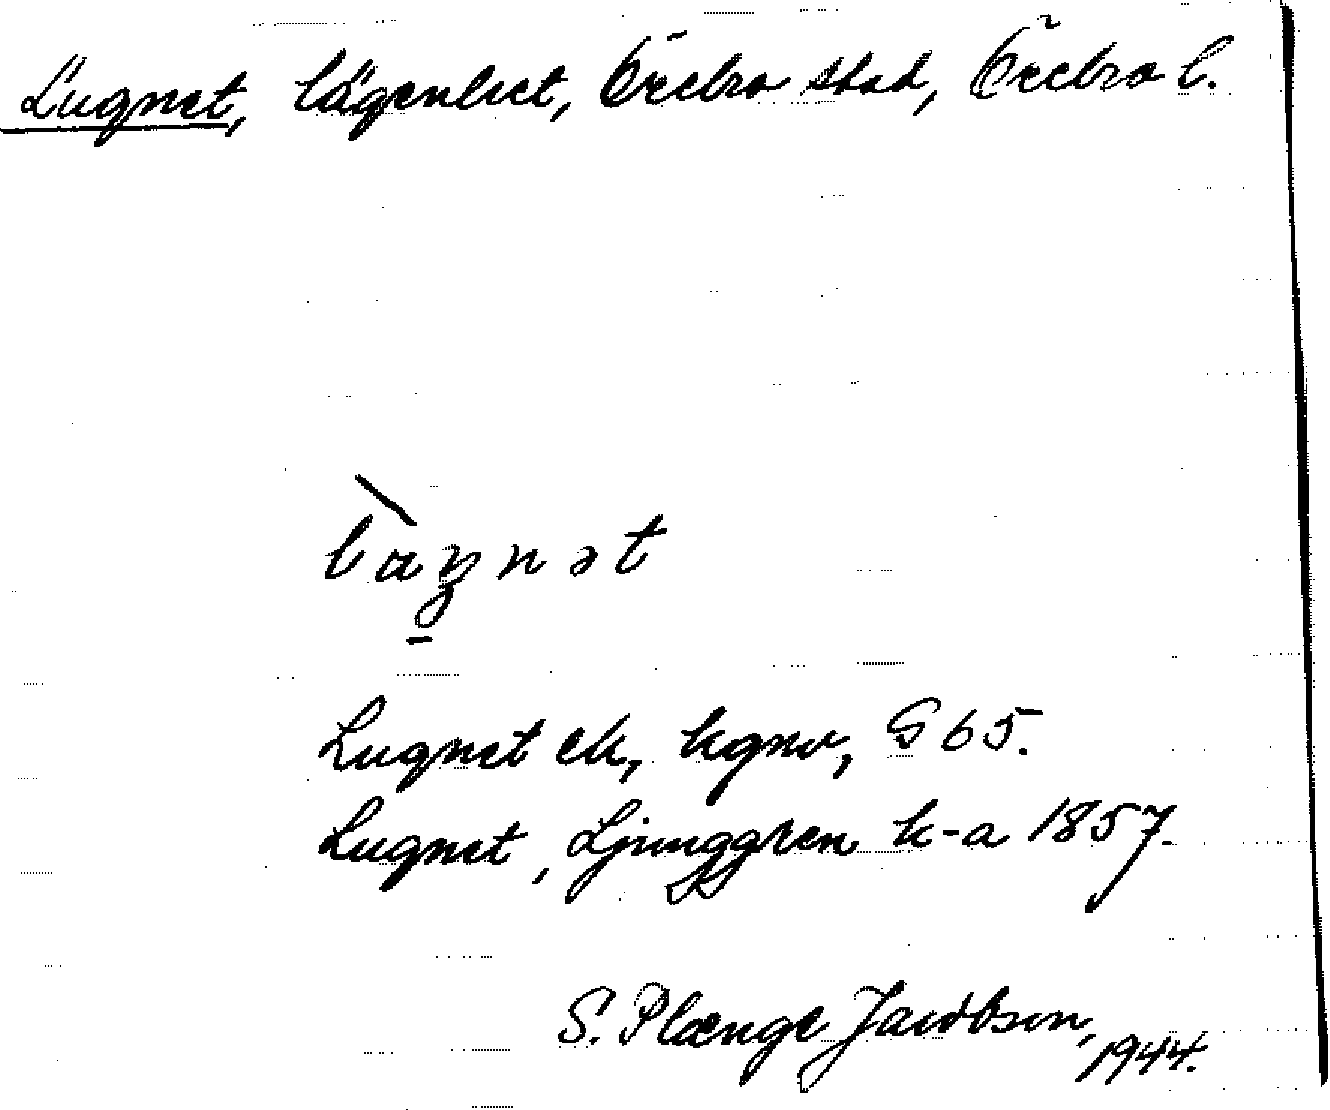 Lugnet, lägenhet, Örebro stad, Örebro l.
Lugnet ek, kgnv, S 65.
Lugnet, Ljunggren k-a 1857.
S. Plænge Jacobson,
1944.